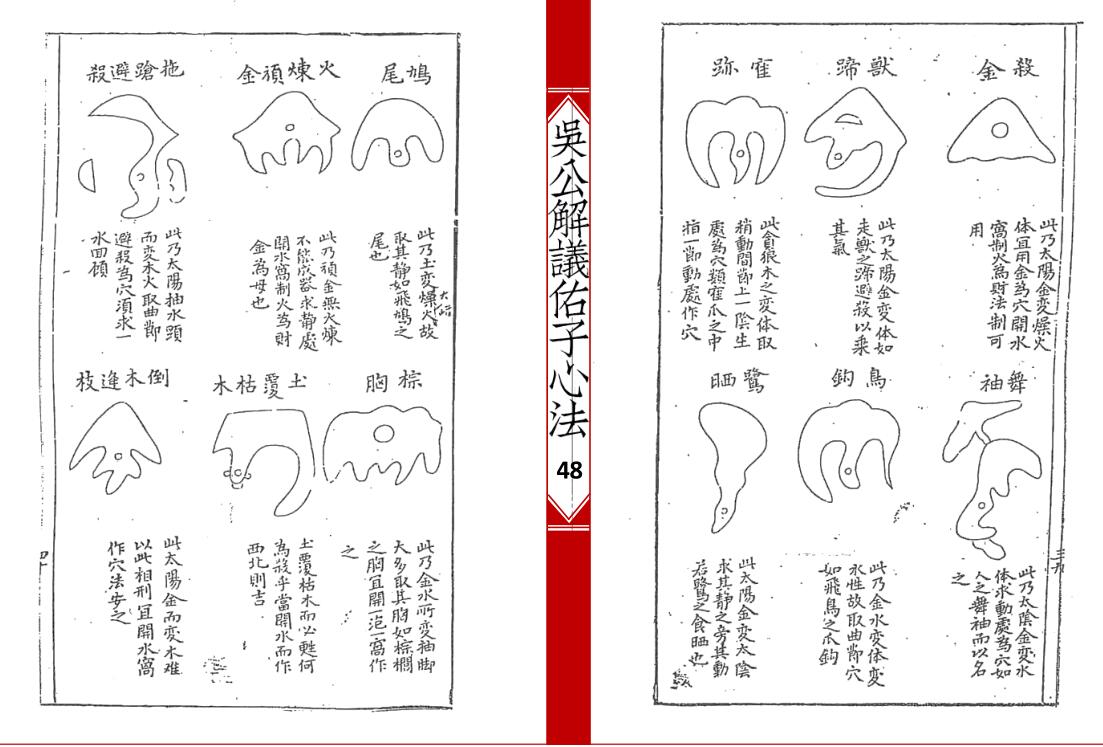 殺金
此乃太陽金变燥火
体宜用金為穴開水
窩制火為財法制可
用
獸蹄
此乃太陽金变体如
走獸之蹄避殺以乘
其氣
寉狝
此貪狼木之变体取
稍動間節上一陰生
處為穴類寉爪之中
指一節動處作穴
舞袖
此乃太陰金变水
体求動處為穴如
人之舞袖而以名
之
鳥鈎
此乃金水变体变
水性故取曲節穴
如飛鳥之爪鈎
鷺晒
此太陽金变太陰
求其静之旁其動
若鷺之食晒也
三九
吳公解議佑子心法
48
鳩尾
此乃土变燥火故
取其静如飛鳩之
尾也
火煉須金
此乃須金無火煉
不能成器求静處
開水窩制火為財
金為母也
拖蹌避殺
此乃太陽抽水頭
而变木火取曲節
避殺為穴須求一
水回頋
棕胸
此乃金水所变袖脚
大多取其胸如棕櫚
之胸宜開一泡一窩作
之
土覆枯木
土覆枯木而必甦何
為殺乎當開水而作
西北則吉
倒木逢枝
此太陽金而变木难
以此相刑宜開水窩
作穴法安之
四十